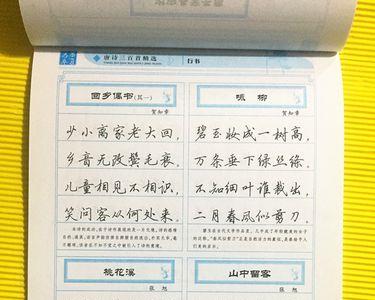 唐诗三百首精选
行书
回乡偶书(其一)
贺知章
少小离家老大回，
乡音无改鬓毛衰。
儿童相见不相识，
笑问客从何处来。
咏柳
贺知章
碧玉妆成一树高，
万条垂下绿丝绦。
不知细叶谁裁出，
二月春风似剪刀。
桃花溪
张旭
山中留客
张旭